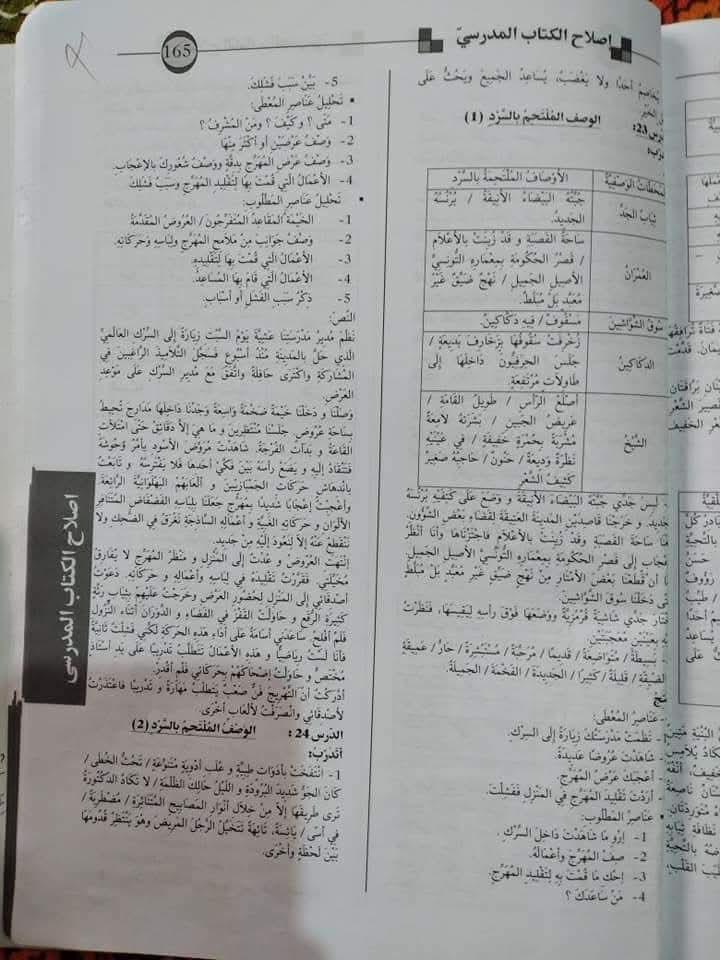 اصلاح الكتاب المدرسيّ
165
يُخَاصِمُ أَحَدًا وَلَا يَغْضَبُ، يُسَاعِدُ الجَمِيعَ وَيَحُثُّ عَلَى
الخَيْرِ
الدرس 23: الوصف المُلْتَحِمُ بالسَّرْدِ (1)
الأَوْصَافُ المُلْتَحِمَةُ بِالسَّرْدِ
ثِيَابُ الجَدِّ
جُبَّتُهُ البَيْضَاءُ الأَنِيقَةُ / بُرْنُسُهُ
الجَدِيدُ.
العُمْرَانُ
سَاحَةُ القَصَبَةِ وَ قَدْ زُيِّنَتْ بِالأَعْلَامِ
/ قَصْرُ الحُكُومَةِ بِمِعْمَارِهِ التُّونِسِيِّ
الأَصِيلِ الجَمِيلِ / نَهْجٌ ضَيِّقٌ غَيْرُ
مُعَبَّدٍ بَلْ مُبَلَّطٌ.
سُوقُ الشَّوَّاشِينَ
مَسْقُوفٌ / فِيهِ دَكَاكِينُ.
الدكَاكِينُ
زُخْرِفَتْ سُقُوفُهَا بِزَخَارِفَ بَدِيعَةٍ /
جَلَسَ الحِرَفِيُّونَ دَاخِلَهَا إِلَى
طَاوِلَاتٍ مُرْتَفِعَةٍ.
الشَّيْخُ
أَصْلَعُ الرَّأْسِ / طَوِيلُ القَامَةِ /
عَرِيضُ الجَبِينِ / بَشَرَتُهُ لَامِعَةٌ
مُشْرَبَةٌ بِحُمْرَةٍ خَفِيفَةٍ / فِي عَيْنَيْهِ
نَظْرَةٌ وَدِيعَةٌ / حَنُونٌ / حَاجِبُهُ صَغِيرٌ
كَثِيفُ الشَّعْرِ
لَبِسَ جَدِّي جُبَّتَهُ البَيْضَاءَ الأَنِيقَةَ وَ وَضَعَ عَلَى كَتِفَيْهِ بُرْنُسَهُ
الجَدِيدَ. وَ خَرَجْنَا قَاصِدَيْنِ المَدِينَةَ العَتِيقَةَ لِقَضَاءِ بَعْضِ الشُّؤُونِ.
سَاحَةَ القَصَبَةِ وَقَدْ زُيِّنَتْ بِالأَعْلَامِ فَاجْتَزْنَاهَا وَأَنَا أَنْظُرُ
بِإِعْجَابٍ إِلَى قَصْرِ الحُكُومَةِ بِمِعْمَارِهِ التُّونُسِيِّ الأَصِيلِ الجَمِيلِ.
أَنْ قَطَعْنَا بَعْضَ الأَمْتَارِ مِنْ نَهْجٍ ضَيِّقٍ غَيْرِ مُعَبَّدٍ بَلْ مُبَلَّطٍ
دَخَلْنَا سُوقَ الشَّوَّاشِينَ.
جَدِّي شَاشِيَةً قِرْمِزِيَّةً وَوَضَعَهَا فَوْقَ رَأْسِهِ لِيَقِيسَهَا، فَنَظَرْتُ
بِعَيْنَيْنِ مُعْجَبَتَيْنِ.
بَسِيطَةً / مُتَوَاضِعَةً / قَدِيمًا / مُرَحِّبَةً / مُسْتَبْشِرَةً / حَارٌّ / عَمِيقَةٍ
الضَّيِّقَةِ / قَلِيلَةً / كَثِيرًا / الجَدِيدَةِ / الفَخْمَةِ / الجَمِيلَةِ.
عَنَاصِرُ المُعْطَى:
- نَظَّمَتْ مَدْرَسَتُكَ زِيَارَةً إِلَى السِّرْكِ.
- شَاهَدْتَ عُرُوضًا عَدِيدَةً.
- أَعْجَبَكَ عَرْضُ المُهَرِّجِ.
- أَرَدْتَ تَقْلِيدَ المُهَرِّجِ فِي المَنْزِلِ فَفَشِلْتَ.
عَنَاصِرُ المَطْلُوبِ:
1- اِرْوِ مَا شَاهَدْتَ دَاخِلَ السِّرْكِ.
2- صِفِ المُهَرِّجَ وَأَعْمَالَهُ.
3- اِحْكِ مَا قُمْتَ بِهِ لِتَقْلِيدِ المُهَرِّجِ.
4- مَنْ سَاعَدَكَ ؟
5- بَيِّنْ سَبَبَ فَشَلِكَ.
▪ تَحْلِيلُ عَنَاصِرِ المُعْطَى:
1- مَتَى ؟ وَكَيْفَ ؟ وَمَنْ المُشْرِفُ ؟
2- وَصْفُ عَرْضَيْنِ أَوْ أَكْثَرَ مِنْهَا
3- وَصْفُ عَرْضِ المُهَرِّجِ بِدِقَّةٍ وَوَصْفُ شُعُورِكَ بِالإِعْجَابِ.
4- الأَعْمَالُ الَّتِي قُمْتَ بِهَا لِتَقْلِيدِ المُهَرِّجِ وَسَبَبُ فَشَلِكَ
▪ تَحْلِيلُ عَنَاصِرِ المَطْلُوبِ:
1- الخَيْمَةُ المَقَاعِدُ المُتَفَرِّجُونَ / العُرُوضُ المُقَدَّمَةُ
2- وَصْفُ جَوَانِبَ مِنْ مَلَامِحِ المُهَرِّجِ وَلِبَاسِهِ وَحَرَكَاتِهِ.
3- الأَعْمَالُ الَّتِي قُمْتَ بِهَا لِتَقْلِيدِهِ.
4- الأَعْمَالُ الَّتِي قَامَ بِهَا المُسَاعِدُ.
5- ذِكْرُ سَبَبِ الفَشَلِ أَوْ أَسْبَابٍ.
النَصّ:
نَظَّمَ مُدِيرُ مَدْرَسَتِنَا عَشِيَّةَ يَوْمِ السَّبْتِ زِيَارَةً إِلَى السِّرْكِ العَالَمِيِّ
الَّذِي حَلَّ بِالمَدِينَةِ مُنْذُ أُسْبُوعٍ فَسَجَّلَ التَّلَامِيذَ الرَّاغِبِينَ فِي
المُشَارَكَةِ وَاكْتَرَى حَافِلَةً وَاتَّفَقَ مَعَ مُدِيرِ السِّرْكِ عَلَى مَوْعِدِ
العَرْضِ.
وَصَلْنَا وَ دَخَلْنَا خَيْمَةً ضَخْمَةً وَاسِعَةً وَجَدْنَا دَاخِلَهَا مَدَارِجَ تُحِيطُ
بِسَاحَةِ عُرُوضٍ. جَلَسْنَا مُنْتَظِرِينَ وَ مَا هِيَ إِلَّا دَقَائِقُ حَتَّى امْتَلَأَتِ
القَاعَةُ وَ بَدَأَتِ الفُرْجَةُ. شَاهَدْتُ مُرَوِّضَ الأُسُودِ يَأْمُرُ وُحُوشَهُ
فَتَنْقَادُ إِلَيْهِ وَ يَضَعُ رَأْسَهُ بَيْنَ فَكَّيْ أَحَدِهَا فَلَا يَفْتَرِسُهُ وَ تَابَعْتُ
بِانْدِهَاشٍ حَرَكَاتِ الجُمْبَازِيِّينَ وَ أَلْعَابَهُمُ البَهْلَوَانِيَّةَ الرَّائِعَةَ.
وَأُعْجِبْتُ إِعْجَابًا شَدِيدًا بِمُهَرِّجٍ جَعَلَنَا بِلِبَاسِهِ الفَضْفَاضِ المُتَنَافِرِ
الأَلْوَانِ وَ حَرَكَاتِهِ الغَبِيَّةِ وَ أَعْمَالِهِ السَّاذَجَةِ نَغْرَقُ فِي الضَّحِكِ وَلَا
نَنْقَطِعُ عَنْهُ إِلَّا لِنَعُودَ إِلَيْهِ مِنْ جَدِيدٍ.
اِنْتَهَتِ العُرُوضُ وَ عُدْتُ إِلَى المَنْزِلِ وَ مَنْظَرُ المُهَرِّجِ لَا يُفَارِقُ
مُخَيِّلَتِي. فَقَرَّرْتُ تَقْلِيدَهُ فِي لِبَاسِهِ وَأَعْمَالِهِ وَ حَرَكَاتِهِ. دَعَوْتُ
أَصْدِقَائِي إِلَى المَنْزِلِ لِحُضُورِ العَرْضِ وَخَرَجْتُ عَلَيْهِمْ بِثِيَابٍ رَثَّةٍ
كَثِيرَةِ الرُّقَعِ وَ حَاوَلْتُ القَفْزَ فِي الفَضَاءِ وَ الدَّوَرَانَ أَثْنَاءَ النُّزُولِ
فَلَمْ أُفْلِحْ. سَاعَدَنِي أُسَامَةُ عَلَى أَدَاءِ هَذِهِ الحَرَكَةِ لَكِنِّي فَشِلْتُ ثَانِيَةً
فَأَنَا لَسْتُ رِيَاضِيًّا وَ هَذِهِ الأَعْمَالُ تَتَطَلَّبُ تَدْرِيبًا عَلَى يَدِ أُسْتَاذٍ
مُخْتَصٍّ وَ حَاوَلْتُ إِضْحَاكَهُمْ بِحَرَكَاتِي فَلَمْ أَقْدِرْ.
أَدْرَكْتُ أَنَّ التَّهْرِيجَ فَنٌّ صَعْبٌ يَتَطَلَّبُ مَهَارَةً وَ تَدْرِيبًا فَاعْتَذَرْتُ
لِأَصْدِقَائِي وَانْصَرَفْتُ لِأَلْعَابٍ أُخْرَى.
الدّرس 24: الوَصْفُ المُلْتَحِمُ بالسّرْدِ (2)
أَتَدَرَّبُ:
1- انْتَفَخَتْ بِأَدَوَاتٍ طِبِّيَّةٍ وَ عُلَبِ أَدْوِيَةٍ مُتَنَوِّعَةٍ / تَحُثُّ الخُطَى /
كَانَ الجَوُّ شَدِيدَ البُرُودَةِ وَ اللَّيْلُ حَالِكَ الظُّلْمَةِ / لَا تَكَادُ الدُّكْتُورَةُ
تَرَى طَرِيقَهَا إِلَّا مِنْ خِلَالِ أَنْوَارِ المَصَابِيحِ المُتَنَاثِرَةِ / مُضْطَرِبَةً /
فِي أَسًى / يَائِسَةً. تَائِهَةً تَتَخَيَّلُ الرَّجُلَ المَرِيضَ وَهُوَ يَنْتَظِرُ قُدُومَهَا
بَيْنَ لَحْظَةٍ وَأُخْرَى.
اصلاح الكتاب المدرسي